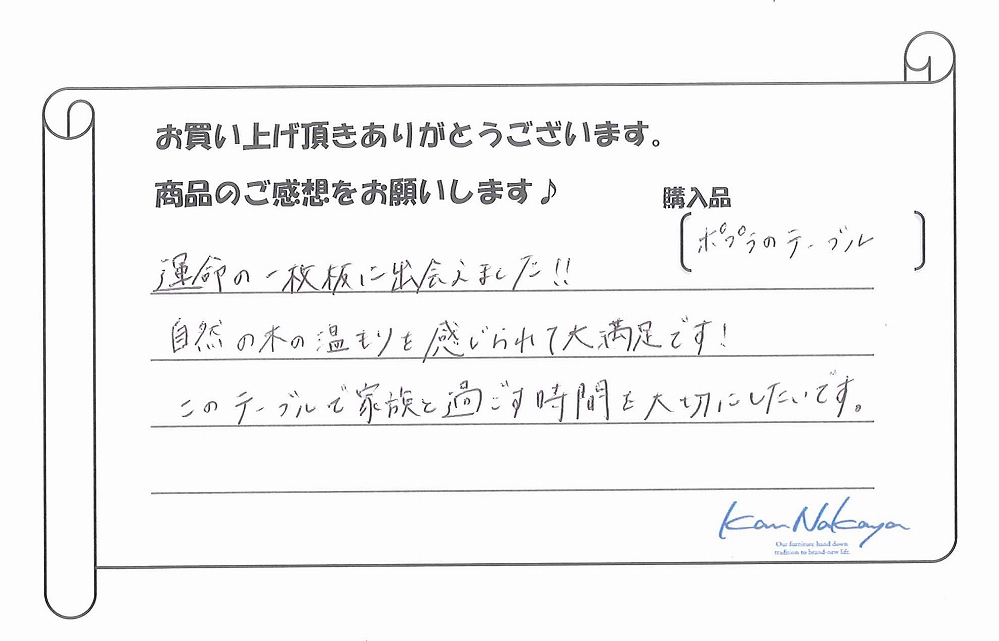 お買い上げ頂きありがとうございます。
商品のご感想をお願いします♪
購入品
ポプラのテーブル
運命の一枚板に出会えました!!
自然の木の温もりを感じられて大満足です!
このテーブルで家族と過ごす時間を大切にしたいです。
Kan Nakaya
Our furniture hand down
tradition to brand-new life.